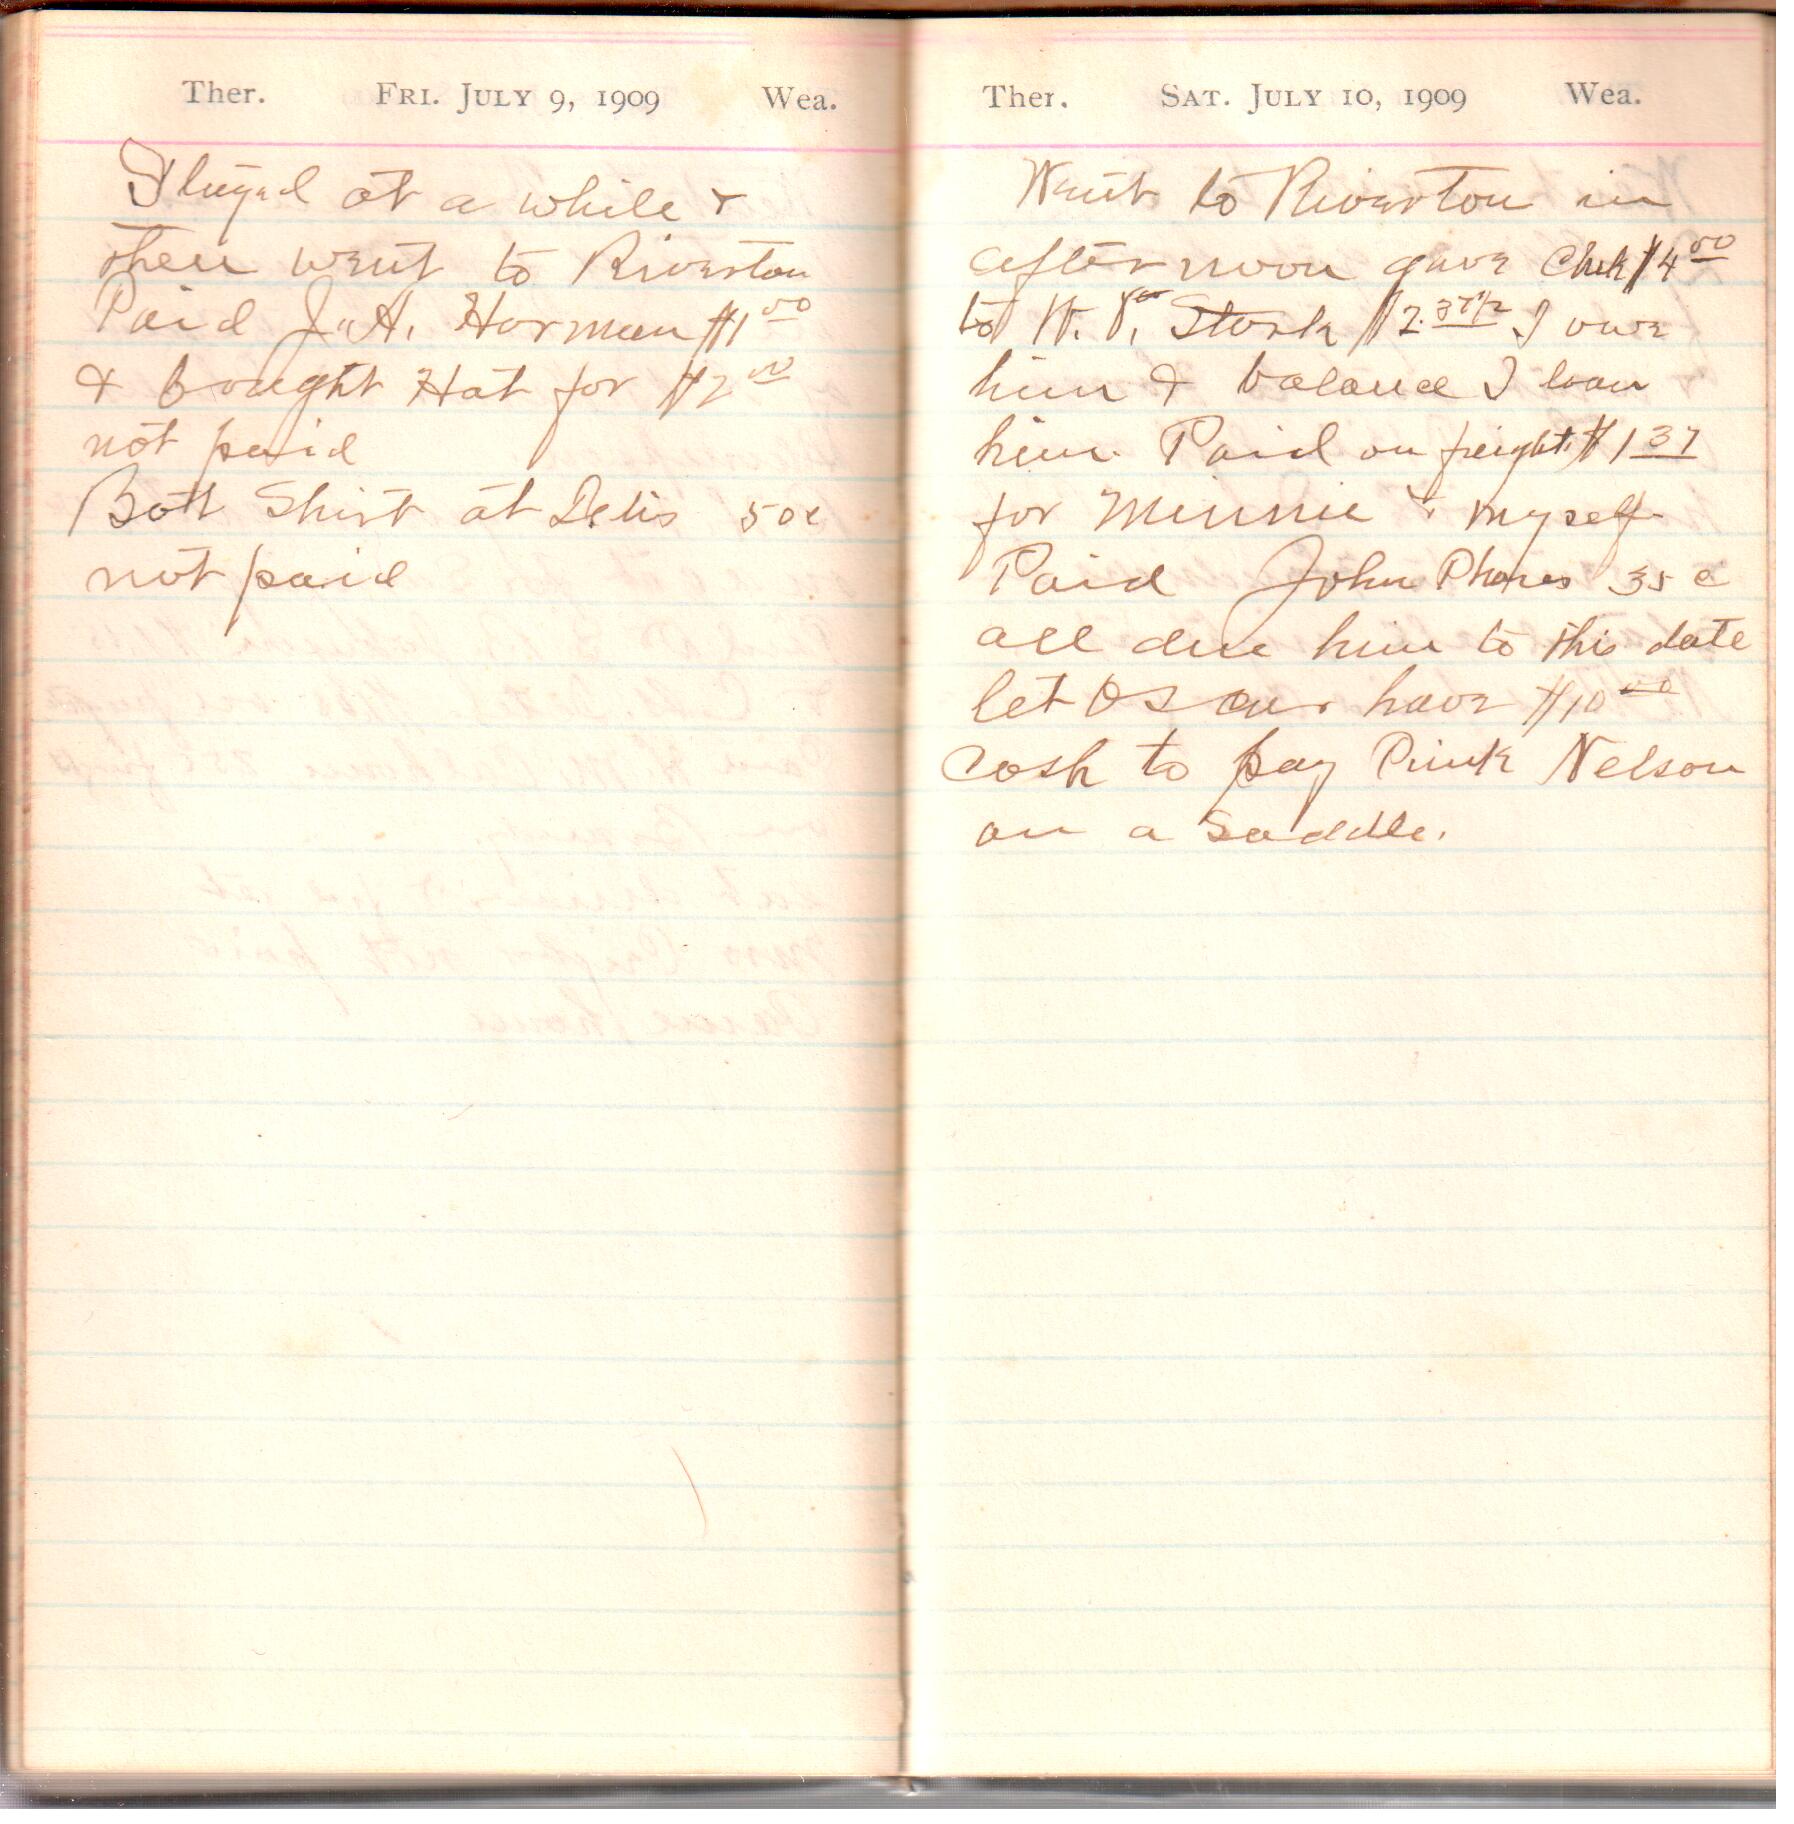 Ther. FRI. JULY 9, 1909 Wea.
at a while &
then went to Riverton
Paid J. A. Harman $1 00
& bought Hat for $2 00
not paid
Bott Shirt at 50c
not paid
Ther. SAT. JULY 10, 1909 Wea.
Went to Riverton in
afternoon gave Chek $4 00
to W. V. Stork $2.37 1/2 I owe
him & balance I loan
him. Paid on freight $1 37
for Minnie & myself
Paid John Phares 35 c
all due him to this date
let Oscar have $10 00
cash to pay Pink Nelson
on a saddle.